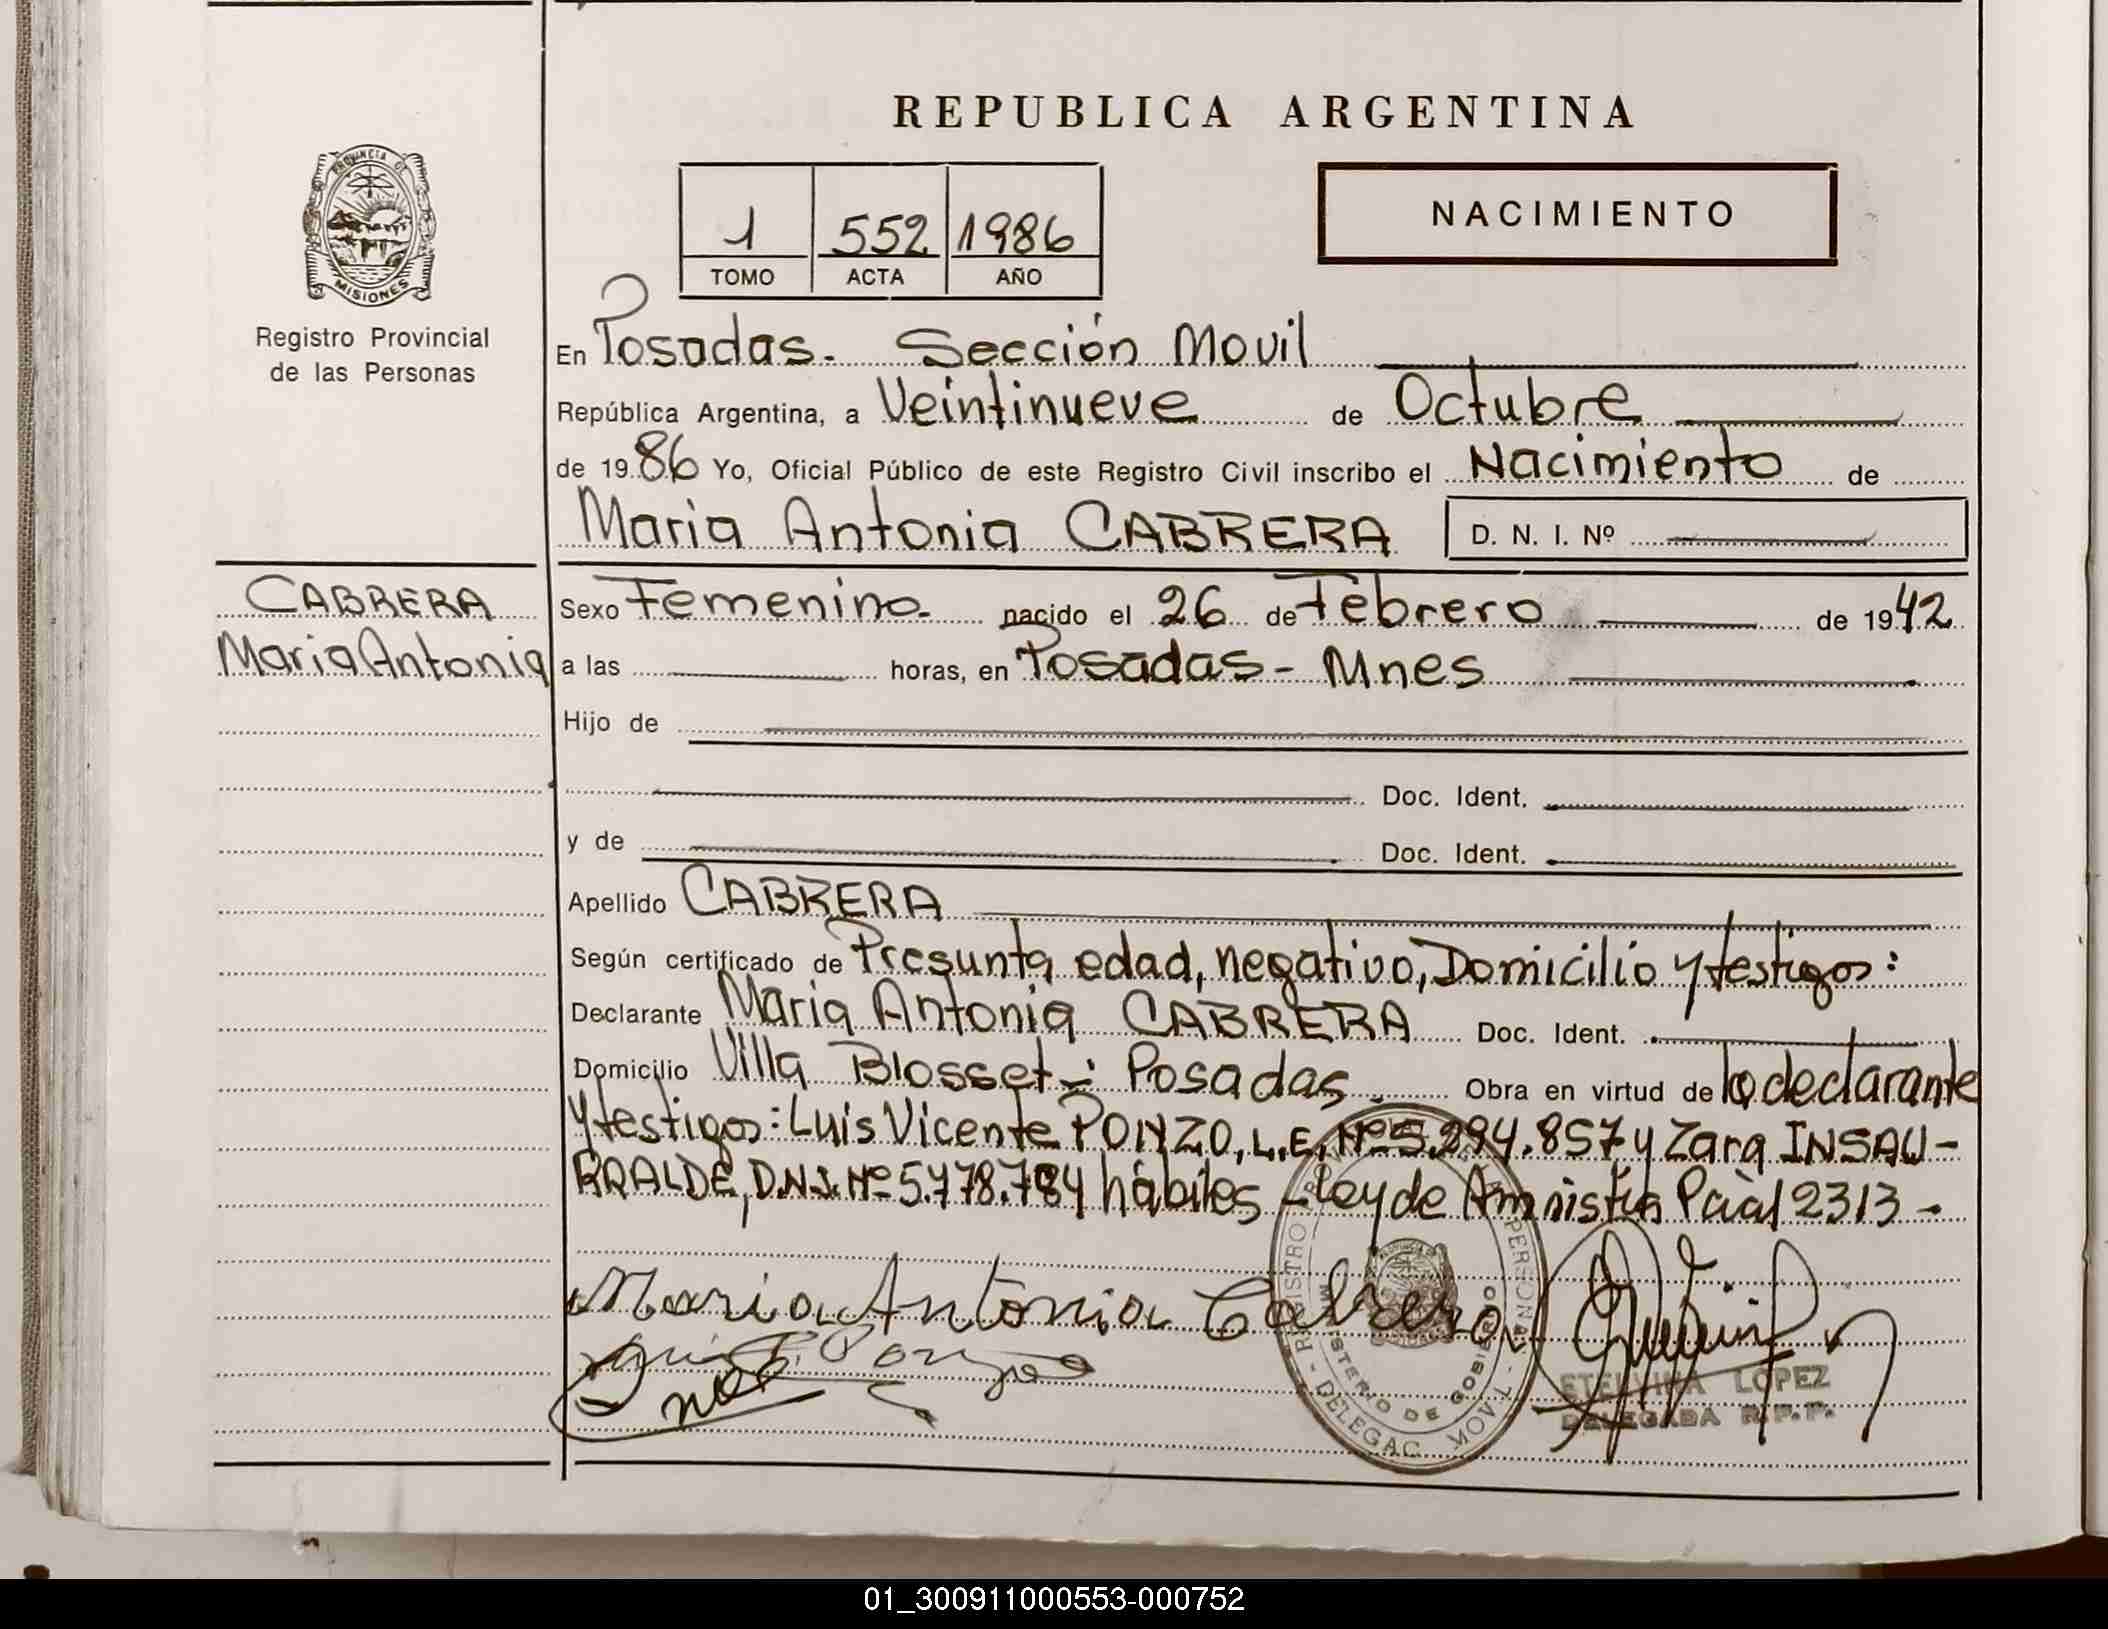 REPUBLICA ARGENTINA
PROVINCIA DE
MISIONES
Registro Provincial
de las Personas
1 552 1986
TOMO ACTA AÑO
NACIMIENTO
En Posadas. Sección Movil
República Argentina, a Veintinueve de Octubre
de 1986 Yo, Oficial Público de este Registro Civil inscribo el Nacimiento de
Maria Antonia CABRERA D. N. I. Nº
CABRERA
Maria Antonia
Sexo Femenino. nacido el 26 de Febrero de 1942
a las horas, en Posadas - Mnes
Hijo de
Doc. Ident.
y de Doc. Ident.
Apellido CABRERA
Según certificado de Presunta edad, negativo, Domicilio y testigos:
Declarante Maria Antonia CABRERA Doc. Ident.
Domicilio Villa Blosset - Posadas. Obra en virtud de la declarante
y testigos: Luis Vicente PONZO, L.E. Nº 5.294.857 y Zara INSAU-
RRALDE, D.N.I. Nº 5.478.784 hábiles - Ley de Amnistia Pcial 2313 -
Maria Antonia Cabrera
Ponzo
REGISTRO PERSONAS
MINISTERIO DE GOBIERNO
DELEGAC. MOVIL
ETELVINA LOPEZ
DELEGADA R.P.P.
01_300911000553-000752